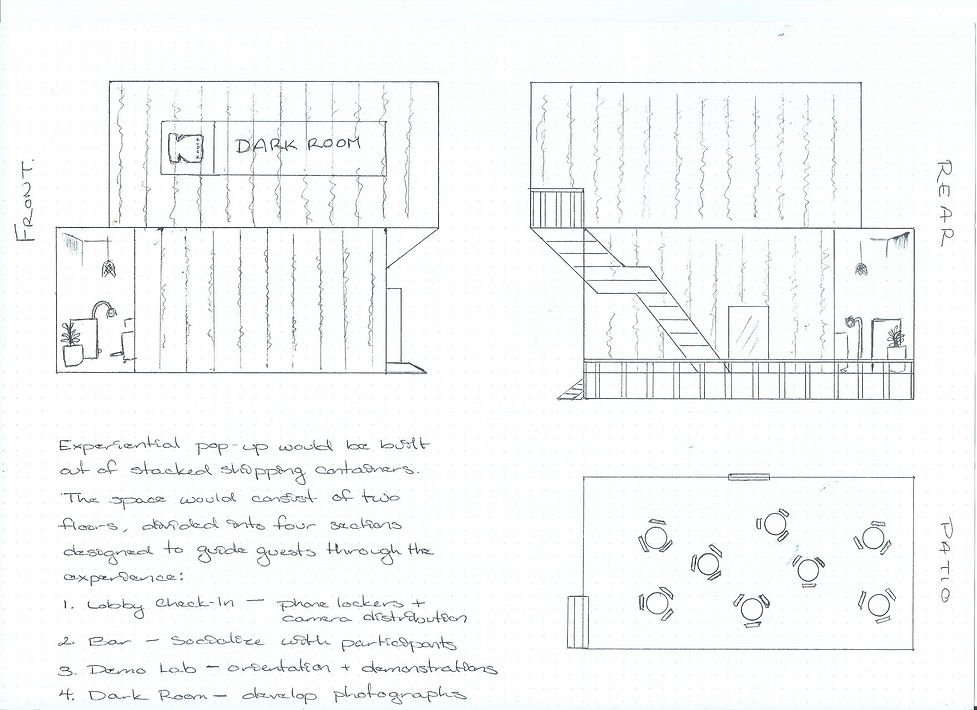 FRONT.
DARK ROOM
REAR
Experiential pop-up would be built
out of stacked shipping containers.
The space would consist of two
floors, divided into four sections
designed to guide guests through the
experience:
1. Lobby Check-In — phone lockers +
camera distribution
2. Bar — Socialize with participants
3. Demo Lab — orientation + demonstrations
4. Dark Room — develop photographs
PATIO